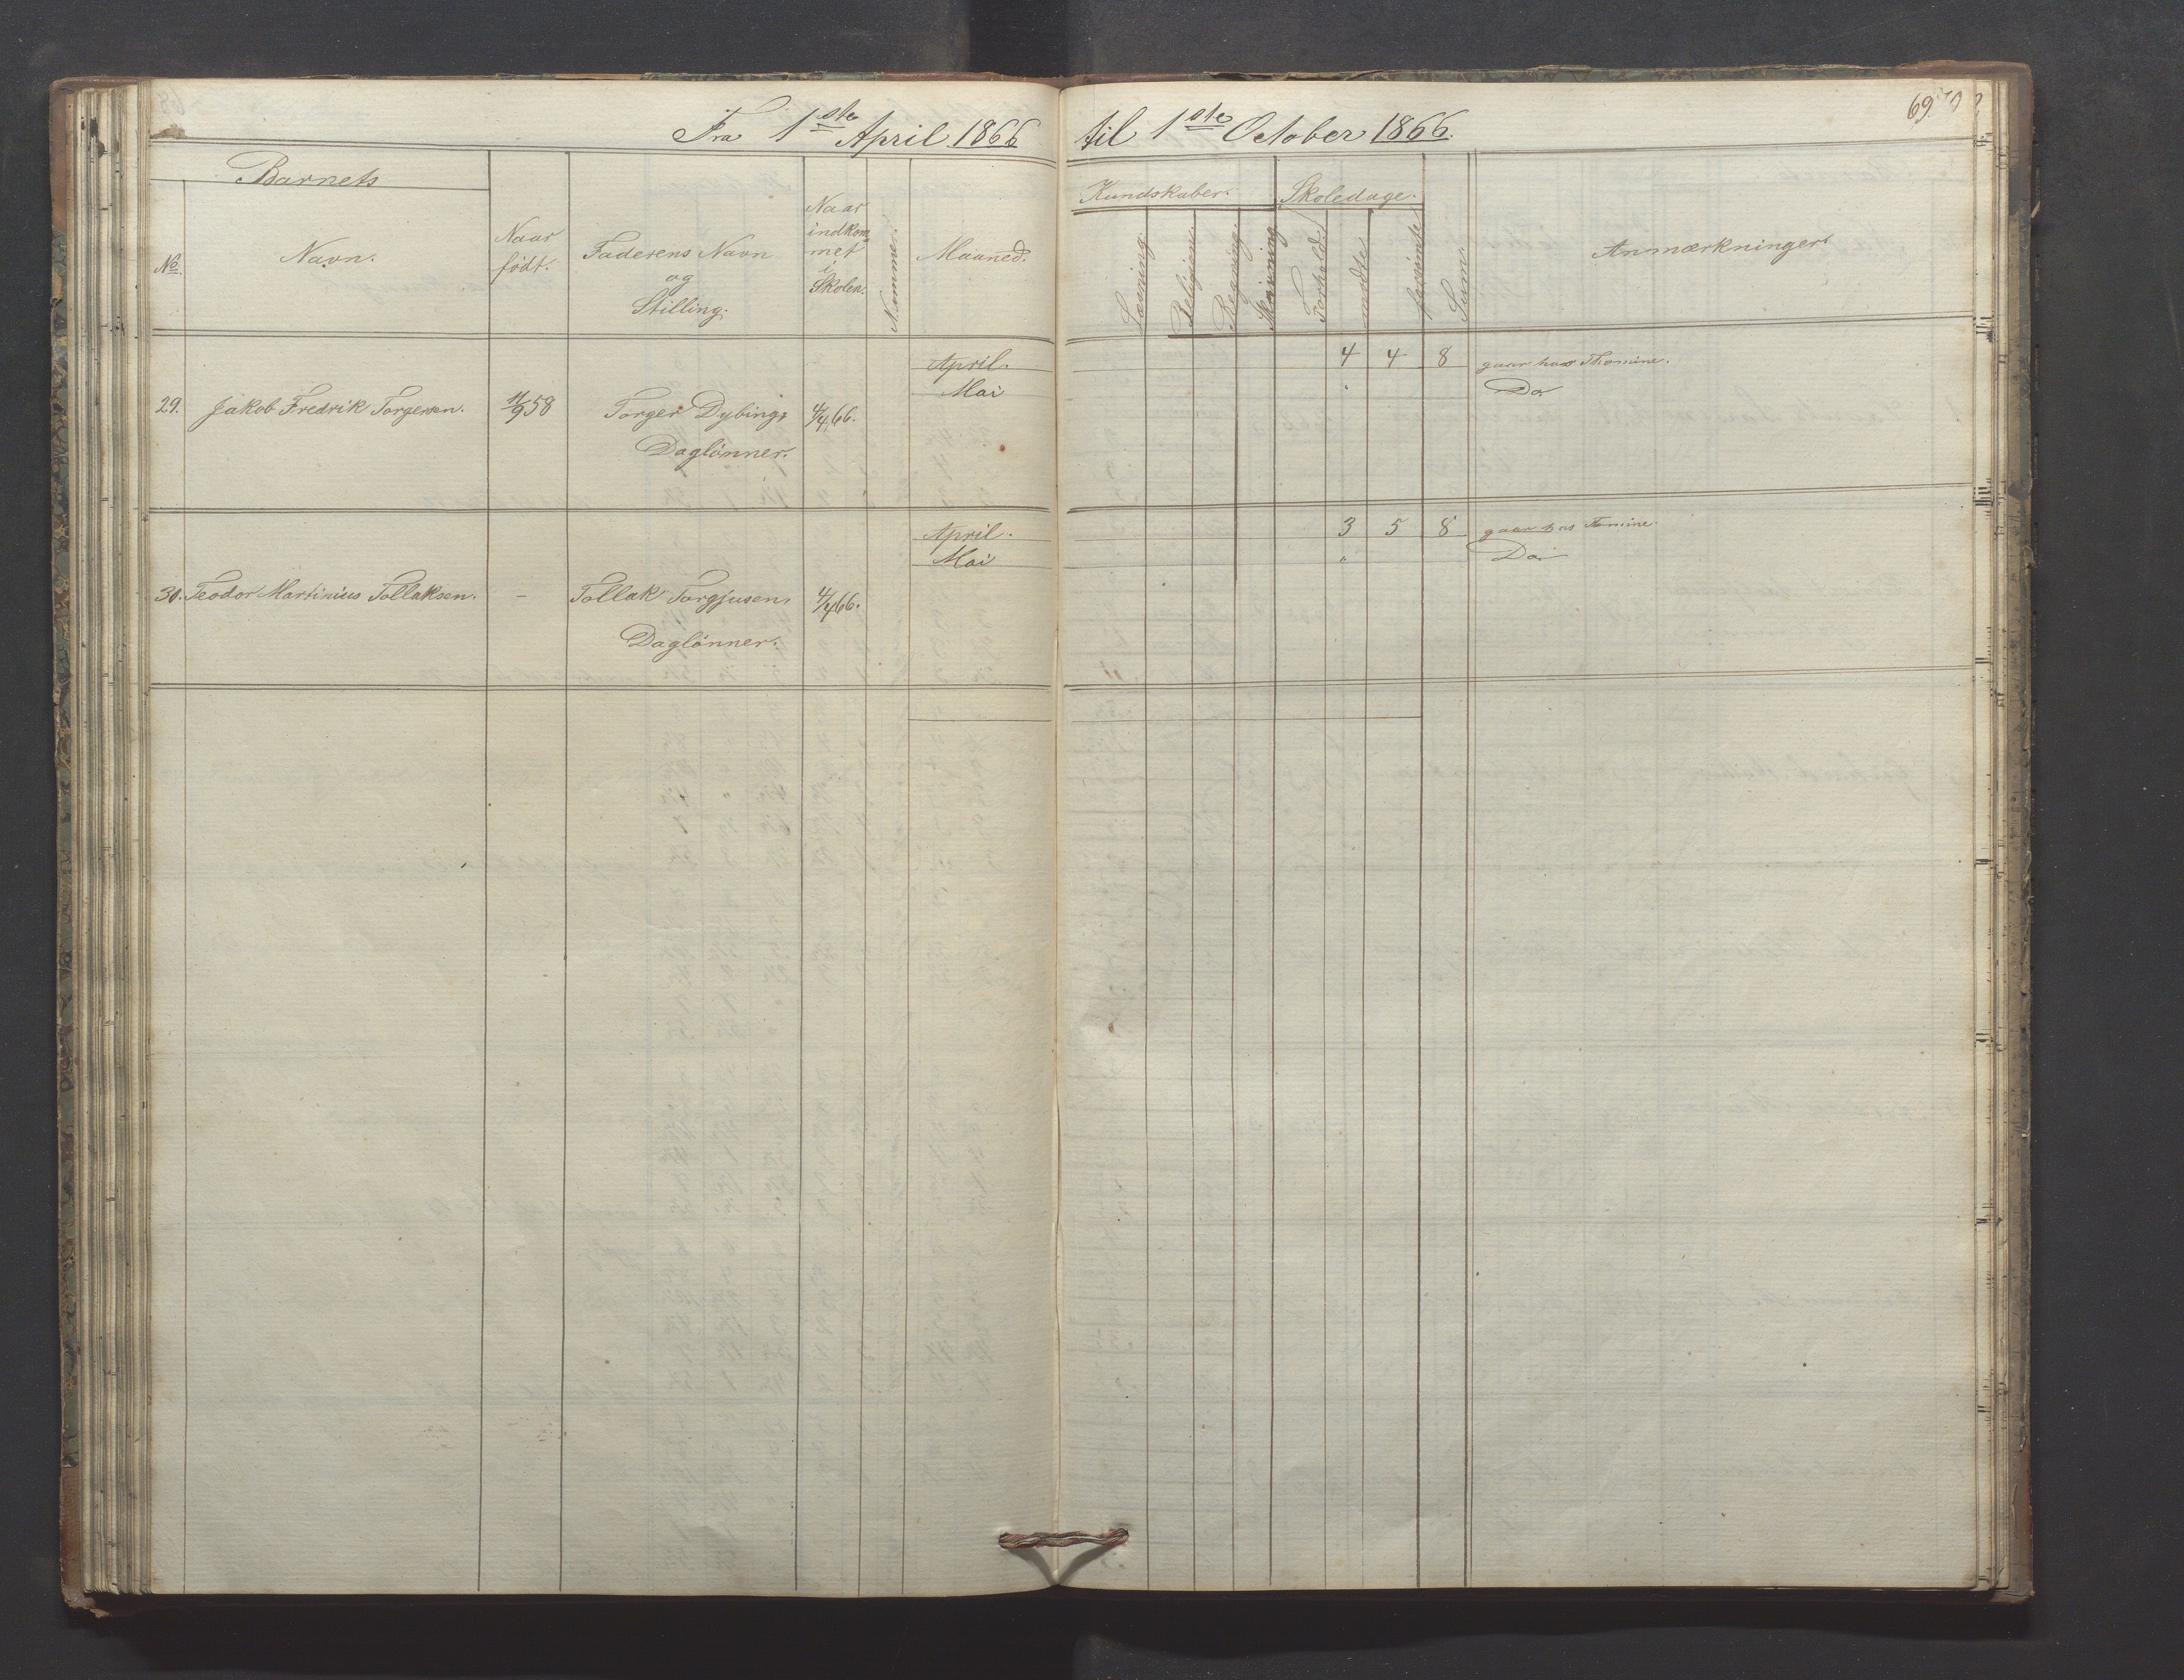 69.
Fra 1ste April 1866 til 1ste October 1866.
Barnets
No. Navn. Naar født. Faderens Navn og Stilling. Naar indkommet i Skolen. Nummer. Maaned.
Kundskaber. Skoledage.
Læsning. Religion. Regning. Skrivning. Forhold. mødte forsømte Sum. Anmærkninger.
April. 4 4 8 gaar hos Thomine.
Mai " Do
29. Jakob Fredrik Torgersen. 11/9 58 Torger Dybing, 4/4 66.
Daglønner.
April. 3 5 8 gaar hos Tomine.
Mai " Do
30. Teodor Martinius Tollaksen. - Tollak Torgjusen, 4/4 66.
Daglønner.